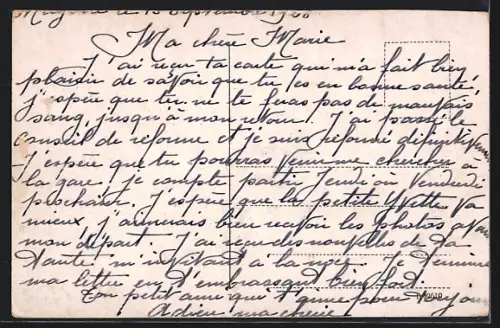 le 15 Septembre 192
Ma chère Marie
J'ai reçu ta carte qui m'a fait bien
plaisir de savoir que tu es en bonne santé,
j'espère que tu ne te feras pas de mauvais
sang, jusqu'à mon retour. J'ai passé le
conseil de réforme et je suis réformé définitivement
J'espère que tu pourras venir me chercher a
la gare. je compte partir Jeudi ou Vendredi
prochain. J'espère que la petite Yvette va
mieux, j'aimerais bien recevoir les photos avant
mon départ. J'ai reçu des nouvelles de
tante m'invitant a la noce. Je termine
ma lettre en t'embrassant bien fort
Ton petit ami qui t'aime pour toujours
Adieu ma chérie